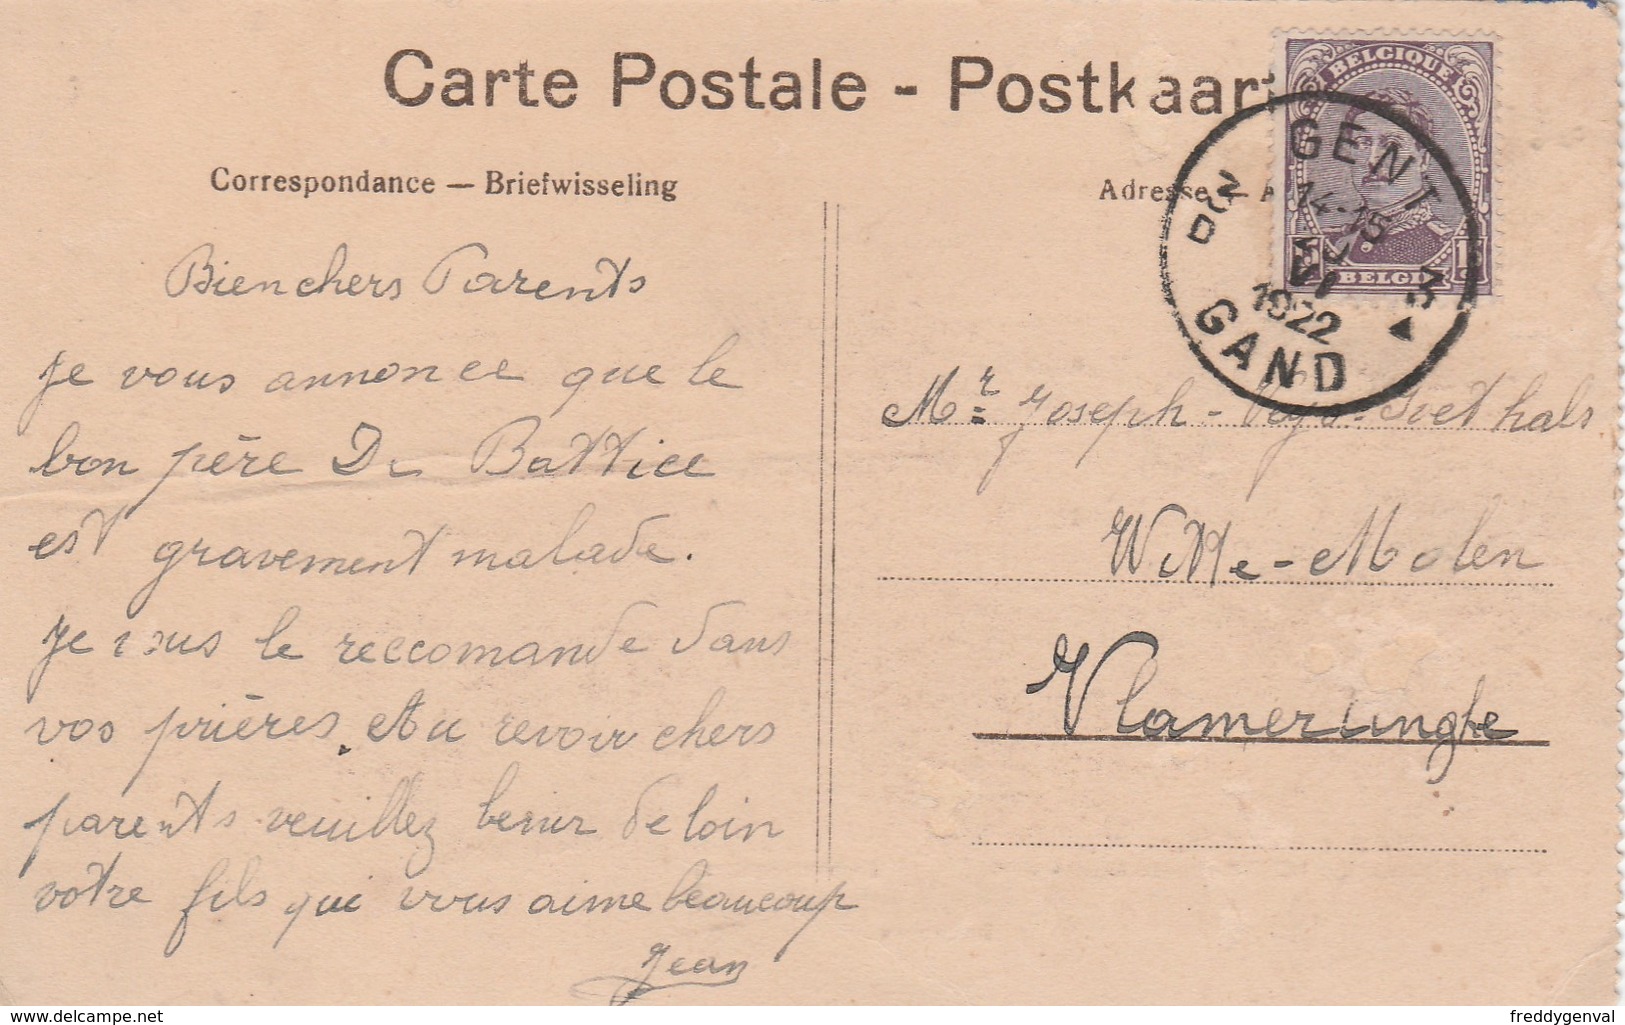 Carte Postale - Postkaart
Correspondance — Briefwisseling
Adresse — A
BELGIQUE
15 15
BELGIE
GENT
14-15
VI
1922
GAND
Bien chers Parents
Je vous annonce que le
bon père De Battice
est gravement malade.
Je vous le reccomande dans
vos prières. et Au revoir chers
parents veuillez benir de loin
votre fils qui vous aime beaucoup
Jean
Mr Joseph - 
Witte-Molen
Vlamertinghe
www.delcampe.net
freddygenval